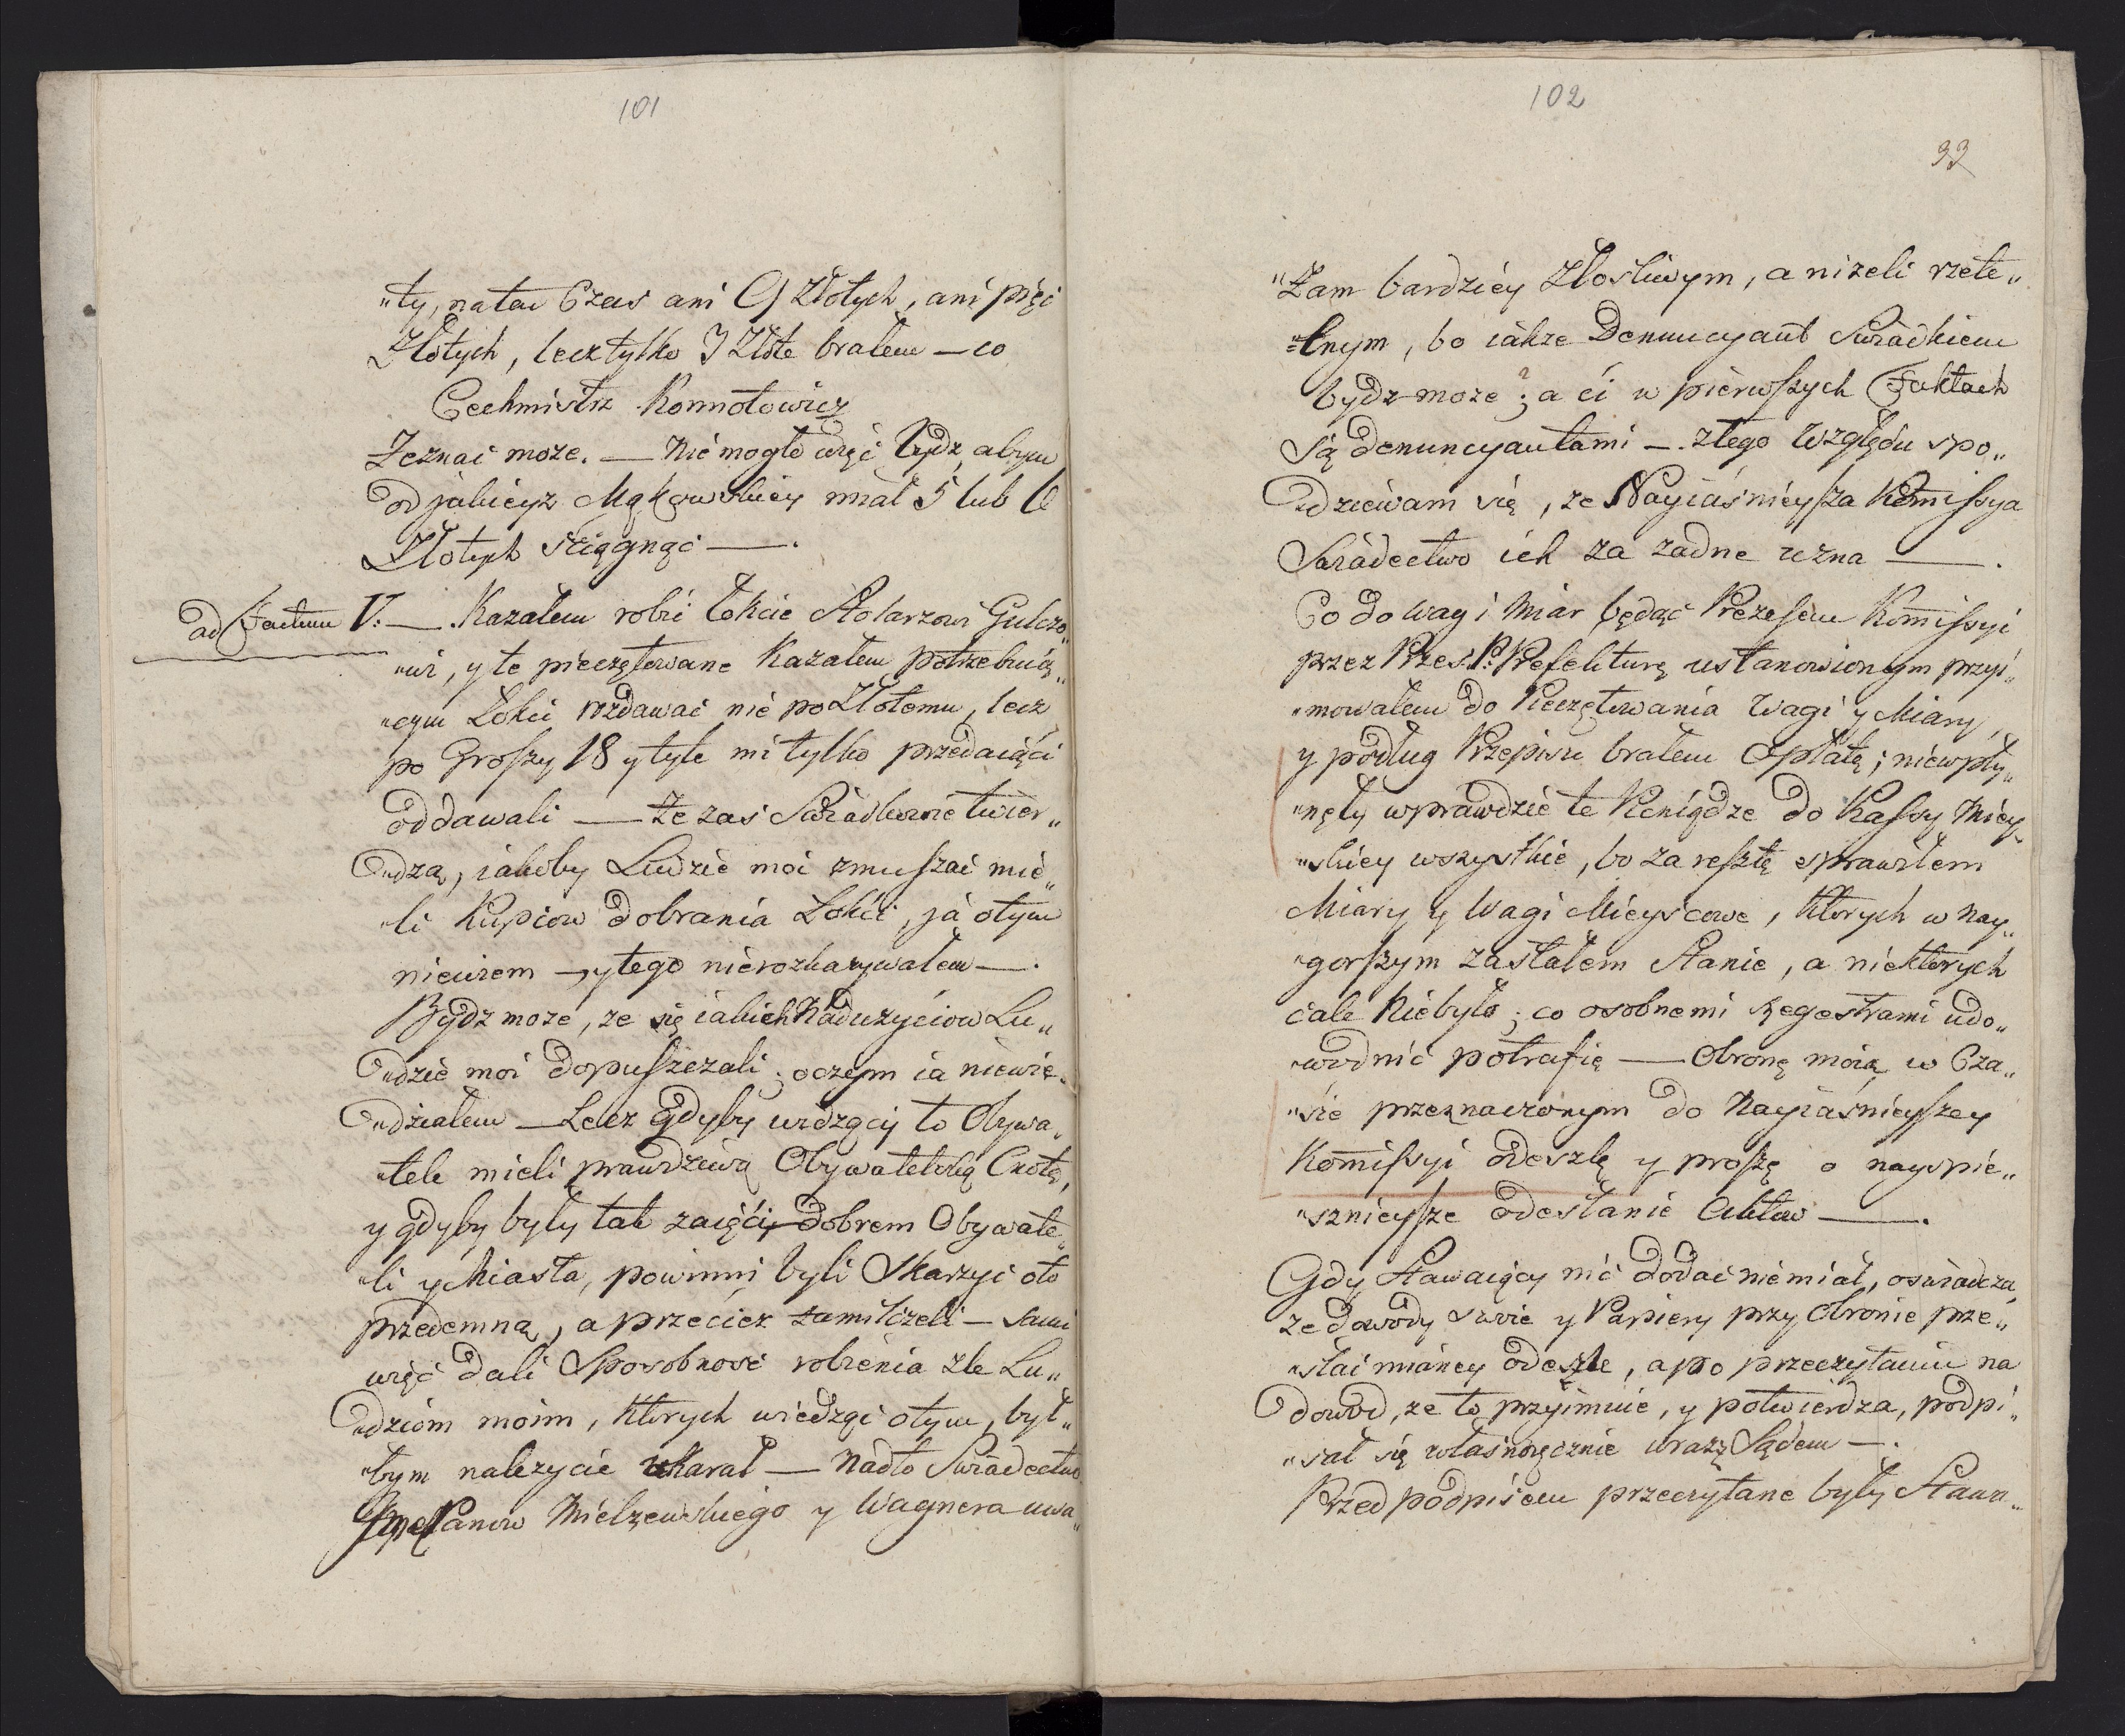 101
„ty, natau Czas ani 9 Złotych, ani pięć
Złotych, lecz tylko 3 Złote brałem — co
Cechmistrz Konnotowicz
Zeznać może. — Nie mogło więc bydz, abym
od jakieyz Mąkowskiey miał 5 lub 6
Złotych sciągnąć —.
ad Factum V. —. Kazałem robić Łokcie Stolarzowi Gulczo„
„wi, y te pieczętowane kazałem potrzebuią„
„cym Łokci rozdawać nie po Złotemu, lecz
po Groszy 18 y tyle mi tylko przedaiąci
oddawali — Że zas Swiadkowie twier„
„dzą, iakoby Ludzie moi zmuszać mie„
„li Kupcow do brania Łokci, ja o tym
niewiem —, y tego nierozkazywałem —.
Bydz moze, ze się iakich Naduzyciow Lu„
„dzie moi dopuszczali; o czym ia niewie„
„działem — Lecz gdyby widzący to Obywa„
„tele mieli prawdziwą Obywatelską Cnotę,
y gdyby byly tak zaięci dobrem Obywate„
„li y Miasta, powinni byli Skarzyć oto
przedemną, a przeciez zamilczeli — sami
więc dali Sposobność robienia zle Lu„
„dziom moim, ktorych wiedząc o tym, był„
„bym nalezycie ukarał — Nadto Swiadectwo
Panow Mielzewskiego y Wagnera uwa„
102
93
„żam bardziey Złosliwym, a nizeli rzete„
„lnym, bo iakze Denuncyant Swiadkiem
bydz moze? a ci w pierwszych Faktach
są denuncyantami —. z tego Względu spo„
„dziewam się, ze Nayiaśnieysza Kommissya
Swiadectwo ich za zadne uzna —.
Co do Wag i Miar będąc Prezesem Kommissyi
przez Przes. P. Prefekturę ustanowionym przyi„
„mowałem do Pieczętowania Wagi y Miary,
y podług Przepisu brałem Opłatę; niewpły„
„nęły wprawdzie te Pieniądze do Kassy Miey„
„skiey wszystkie, bo za resztę sprawiłem
Miary y Wagi Mieyscowe, ktorych w nay„
„gorszym zastałem Stanie, a niektorych
cale Niebyło; co osobnemi regestrami udo„
„wodnić potrafię — Obronę moią w Cza„
„sie przeznaczonym do Nayiaśnieyszey
Kommissyi odeszlę y proszę o nayspie„
„sznieysze odesłanie Aktow —.
Gdy Stawaiący nic dodać nie miał, oswiadcza
ze dowody swoie y Papiery przy Obronie prze„
„słać mianey odeszle, a po przeczytaniu na
dowod, ze to przyimuie, y potwierdza, podpi„
„sał się własnoręcznie wraz z Sądem —.
Przed podpisem przeczytane były Stawa„